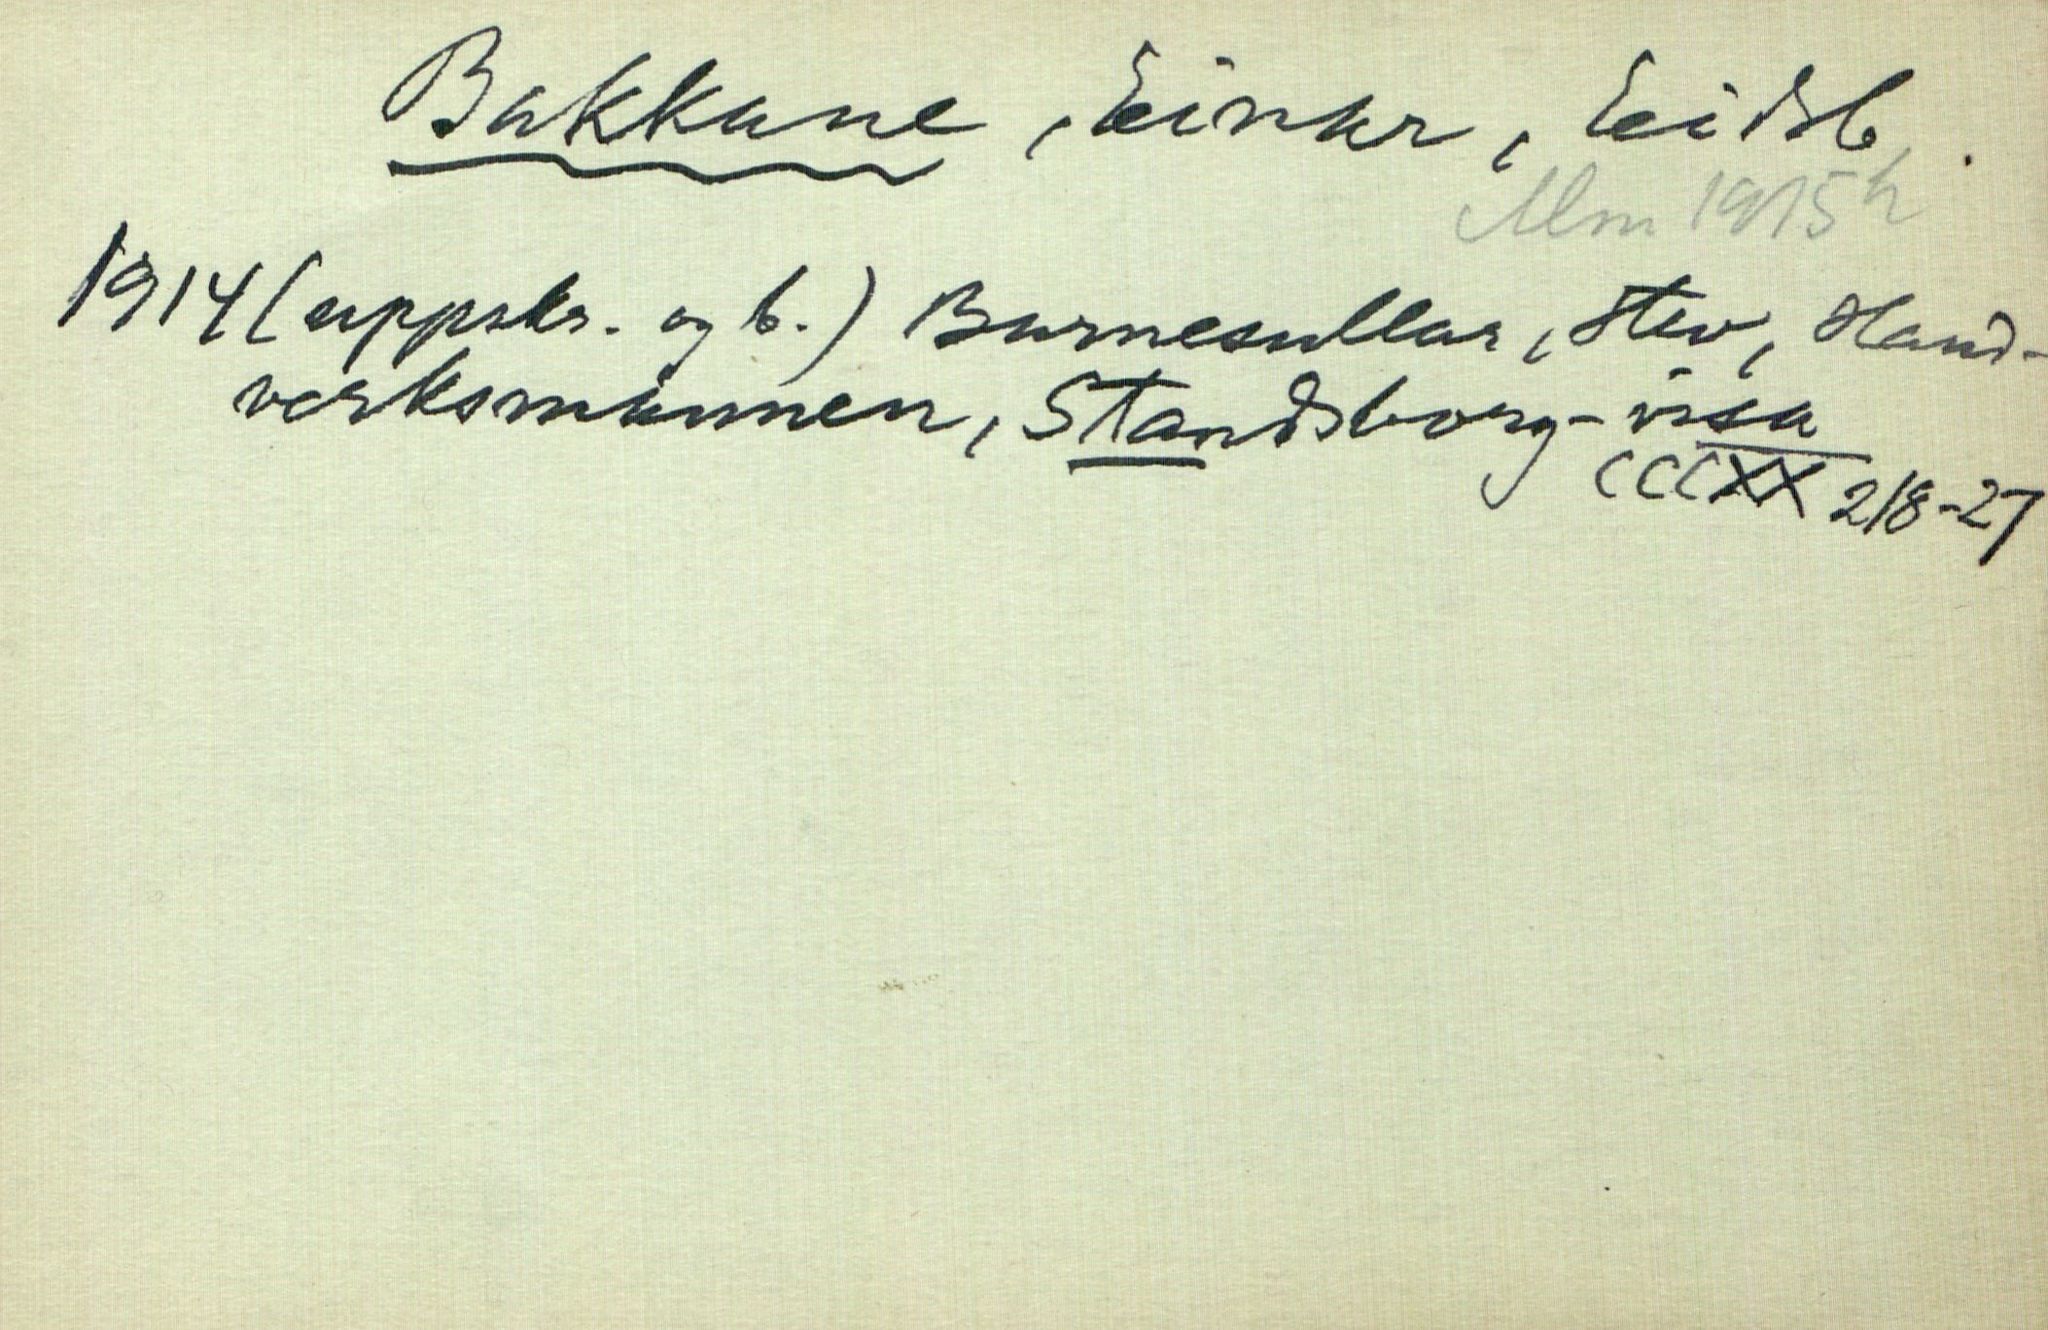 Bakkane, Einar, Eidsb.
Mm 1975 h
1914 (uppskr. og b.) Barnesullar, Stev, Hand-
verksmannen, Standsborg-visa
CCCXX 2/8-27